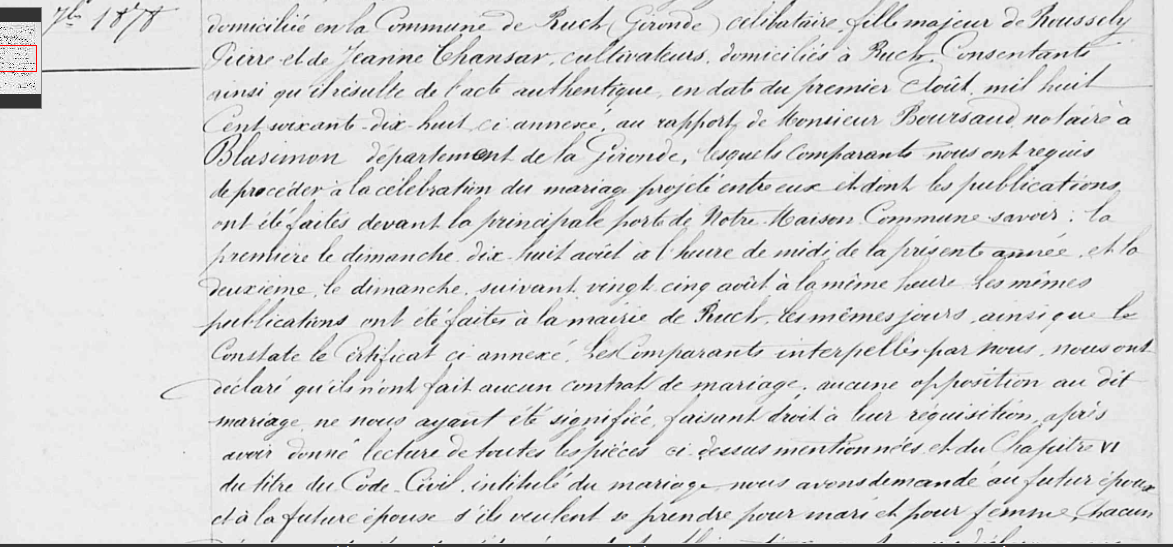 7bre 1878
domiciliée en la Commune de Ruch (Gironde) célibataire, fille majeur de Roussely
Pierre et de Jeanne Chansar, cultivateurs, domiciliés à Ruch, Consentants
ainsi qu'il résulte de l'acte authentique, en date du premier Août, mil huit
Cent soixante-dix-huit, ci annexé, au rapport de Monsieur Boursaud, notaire à
Blasimon département de la Gironde, lesquels Comparants nous ont requis
de procéder à la célébration du mariage projeté entre eux et dont les publications
ont été faites devant la principale porte de Notre Maison Commune savoir : la
première le dimanche dix-huit août à l'heure de midi de la présente année, et la
deuxième, le dimanche suivant vingt cinq août à la même heure. Les mêmes
publications ont été faites à la mairie de Ruch, les mêmes jours, ainsi que le
Constate le Certificat ci annexé. Les Comparants interpellés par nous, nous ont
déclaré qu'ils n'ont fait aucun contrat de mariage, aucune opposition au dit
mariage ne nous ayant été signifiée, faisant droit à leur réquisition, après
avoir donné lecture de toutes les pièces ci-dessus mentionnées et du Chapitre VI
du titre du Code-Civil, intitulé du mariage, nous avons demandé au futur époux
et à la future épouse s'ils veulent se prendre pour mari et pour femme, chacun